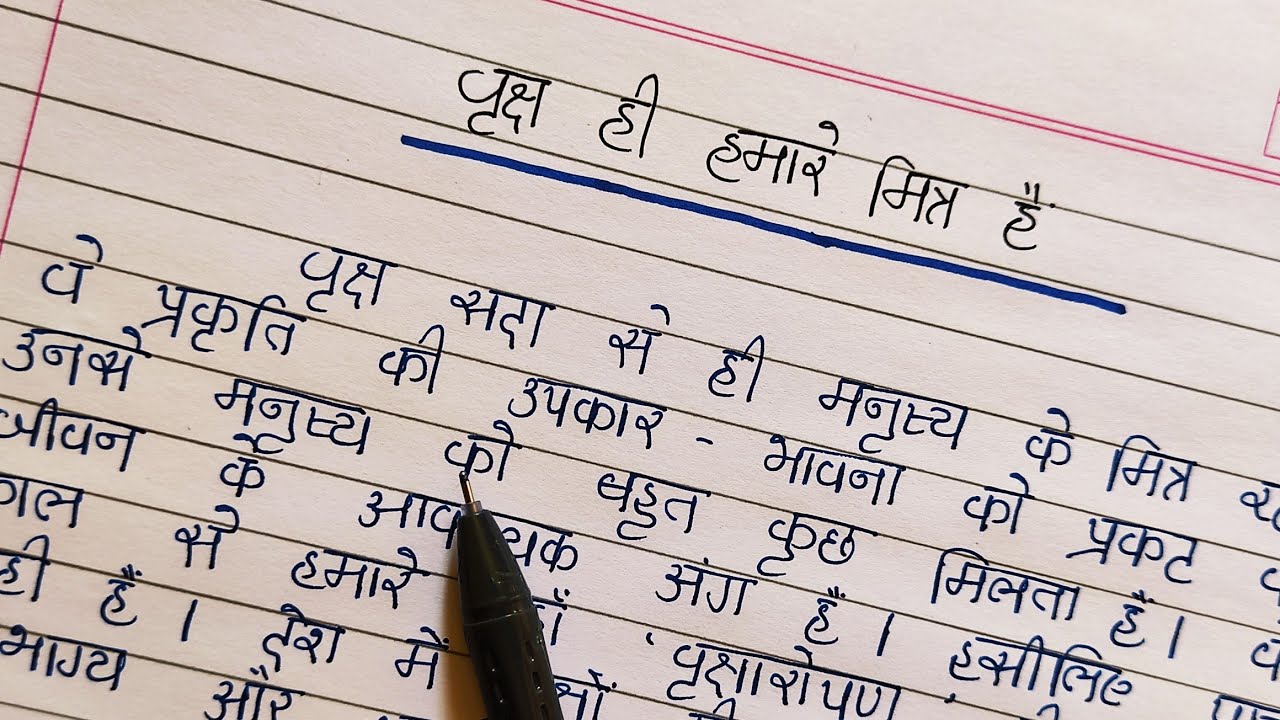 वृक्ष ही हमारे मित्र हैं
वृक्ष सदा से ही मनुष्य के मित्र
वे प्रकृति की उपकार - भावना को प्रकट
उनसे मनुष्य को बहुत कुछ मिलता है । वे
जीवन के आवश्यक अंग हैं । इसीलिए
से हमारे वृक्षारोपण
ही हैं । देश में
भाग्य और